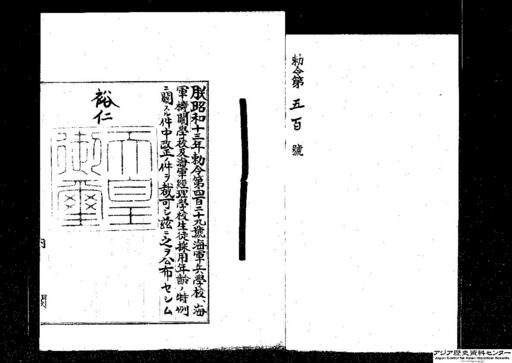 勅令第五百號
朕昭和十三年勅令第四百二十九號海軍兵學校、海
軍機關學校及海軍經理學校生徒採用年齡ノ特例
ニ關スル件中改正ノ件ヲ裁可シ茲ニ之ヲ公布セシム
裕仁
天皇
御璽
內閣
アジア歴史資料センター
Japan Center for Asian Historical Records